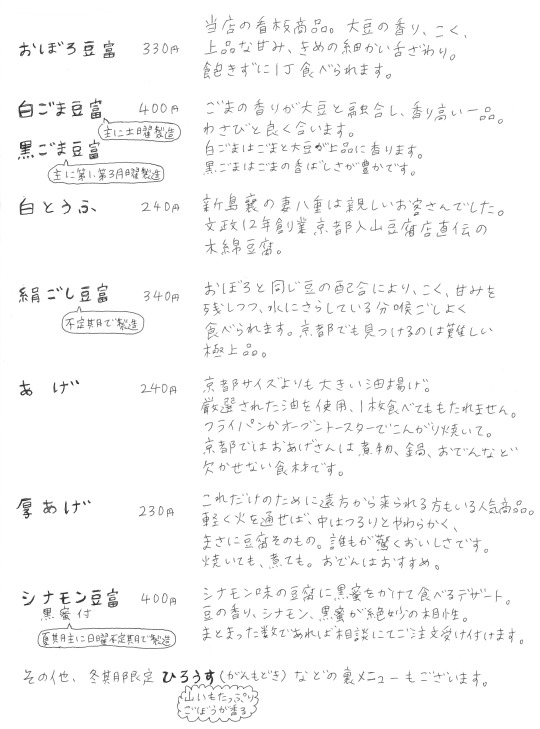 おぼろ豆富 330円
当店の看板商品。大豆の香り、こく、
上品な甘み、きめの細かい舌ざわり。
飽きずに1丁食べられます。
白ごま豆富 400円
主に土曜製造
黒ごま豆富
主に第1、第3月曜製造
ごまの香りが大豆と融合し、香り高い一品。
わさびと良く合います。
白ごまはごまと大豆が上品に香ります。
黒ごまはごまの香ばしさが豊かです。
白とうふ 240円
新島襄の妻八重は親しいお客さんでした。
文政12年創業京都入山豆腐店直伝の
木綿豆腐。
絹ごし豆富 340円
不定期で製造
おぼろと同じ豆の配合により、こく、甘みを
残しつつ、水にさらしている分喉ごしよく
食べられます。京都でも見つけるのは難しい
極上品。
あげ 240円
京都サイズよりも大きい油揚げ。
厳選された油を使用、1枚食べてももたれません。
フライパンかオーブントースターでこんがり焼いて。
京都ではおあげさんは煮物、鍋、おでんなど
欠かせない食材です。
厚あげ 230円
これだけのために遠方から来られる方もいる人気商品。
軽く火を通せば、中はつるりとやわらかく、
まさに豆腐そのもの。誰もが驚くおいしさです。
焼いても、煮ても。おでんはおすすめ。
シナモン豆富 400円
黒蜜付
夏期主に日曜不定期で製造
シナモン味の豆腐に黒蜜をかけて食べるデザート。
豆の香り、シナモン、黒蜜が絶妙の相性。
まとまった数であれば相談にてご注文受け付けます。
その他、冬期限定 ひろうす(がんもどき) などの裏メニューもございます。
山いもたっぷり
ごぼうが香る